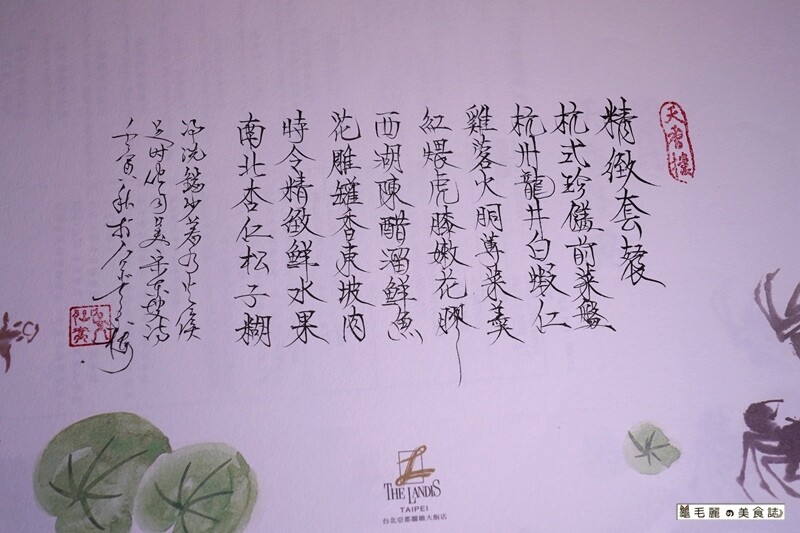 天香樓
精緻套餐
杭式珍饈前菜盤
杭州龍井白蝦仁
雞蓉火胴蓴菜羹
紅煨虎膝嫩花膠
西湖陳醋溜鮮魚
花雕罐香東坡肉
時令精緻鮮水果
南北杏仁松子糊
淨洗鐺少著水火候
足時他自美
THE LANDIS
TAIPEI
台北亞都麗緻大飯店
毛麗の美食誌